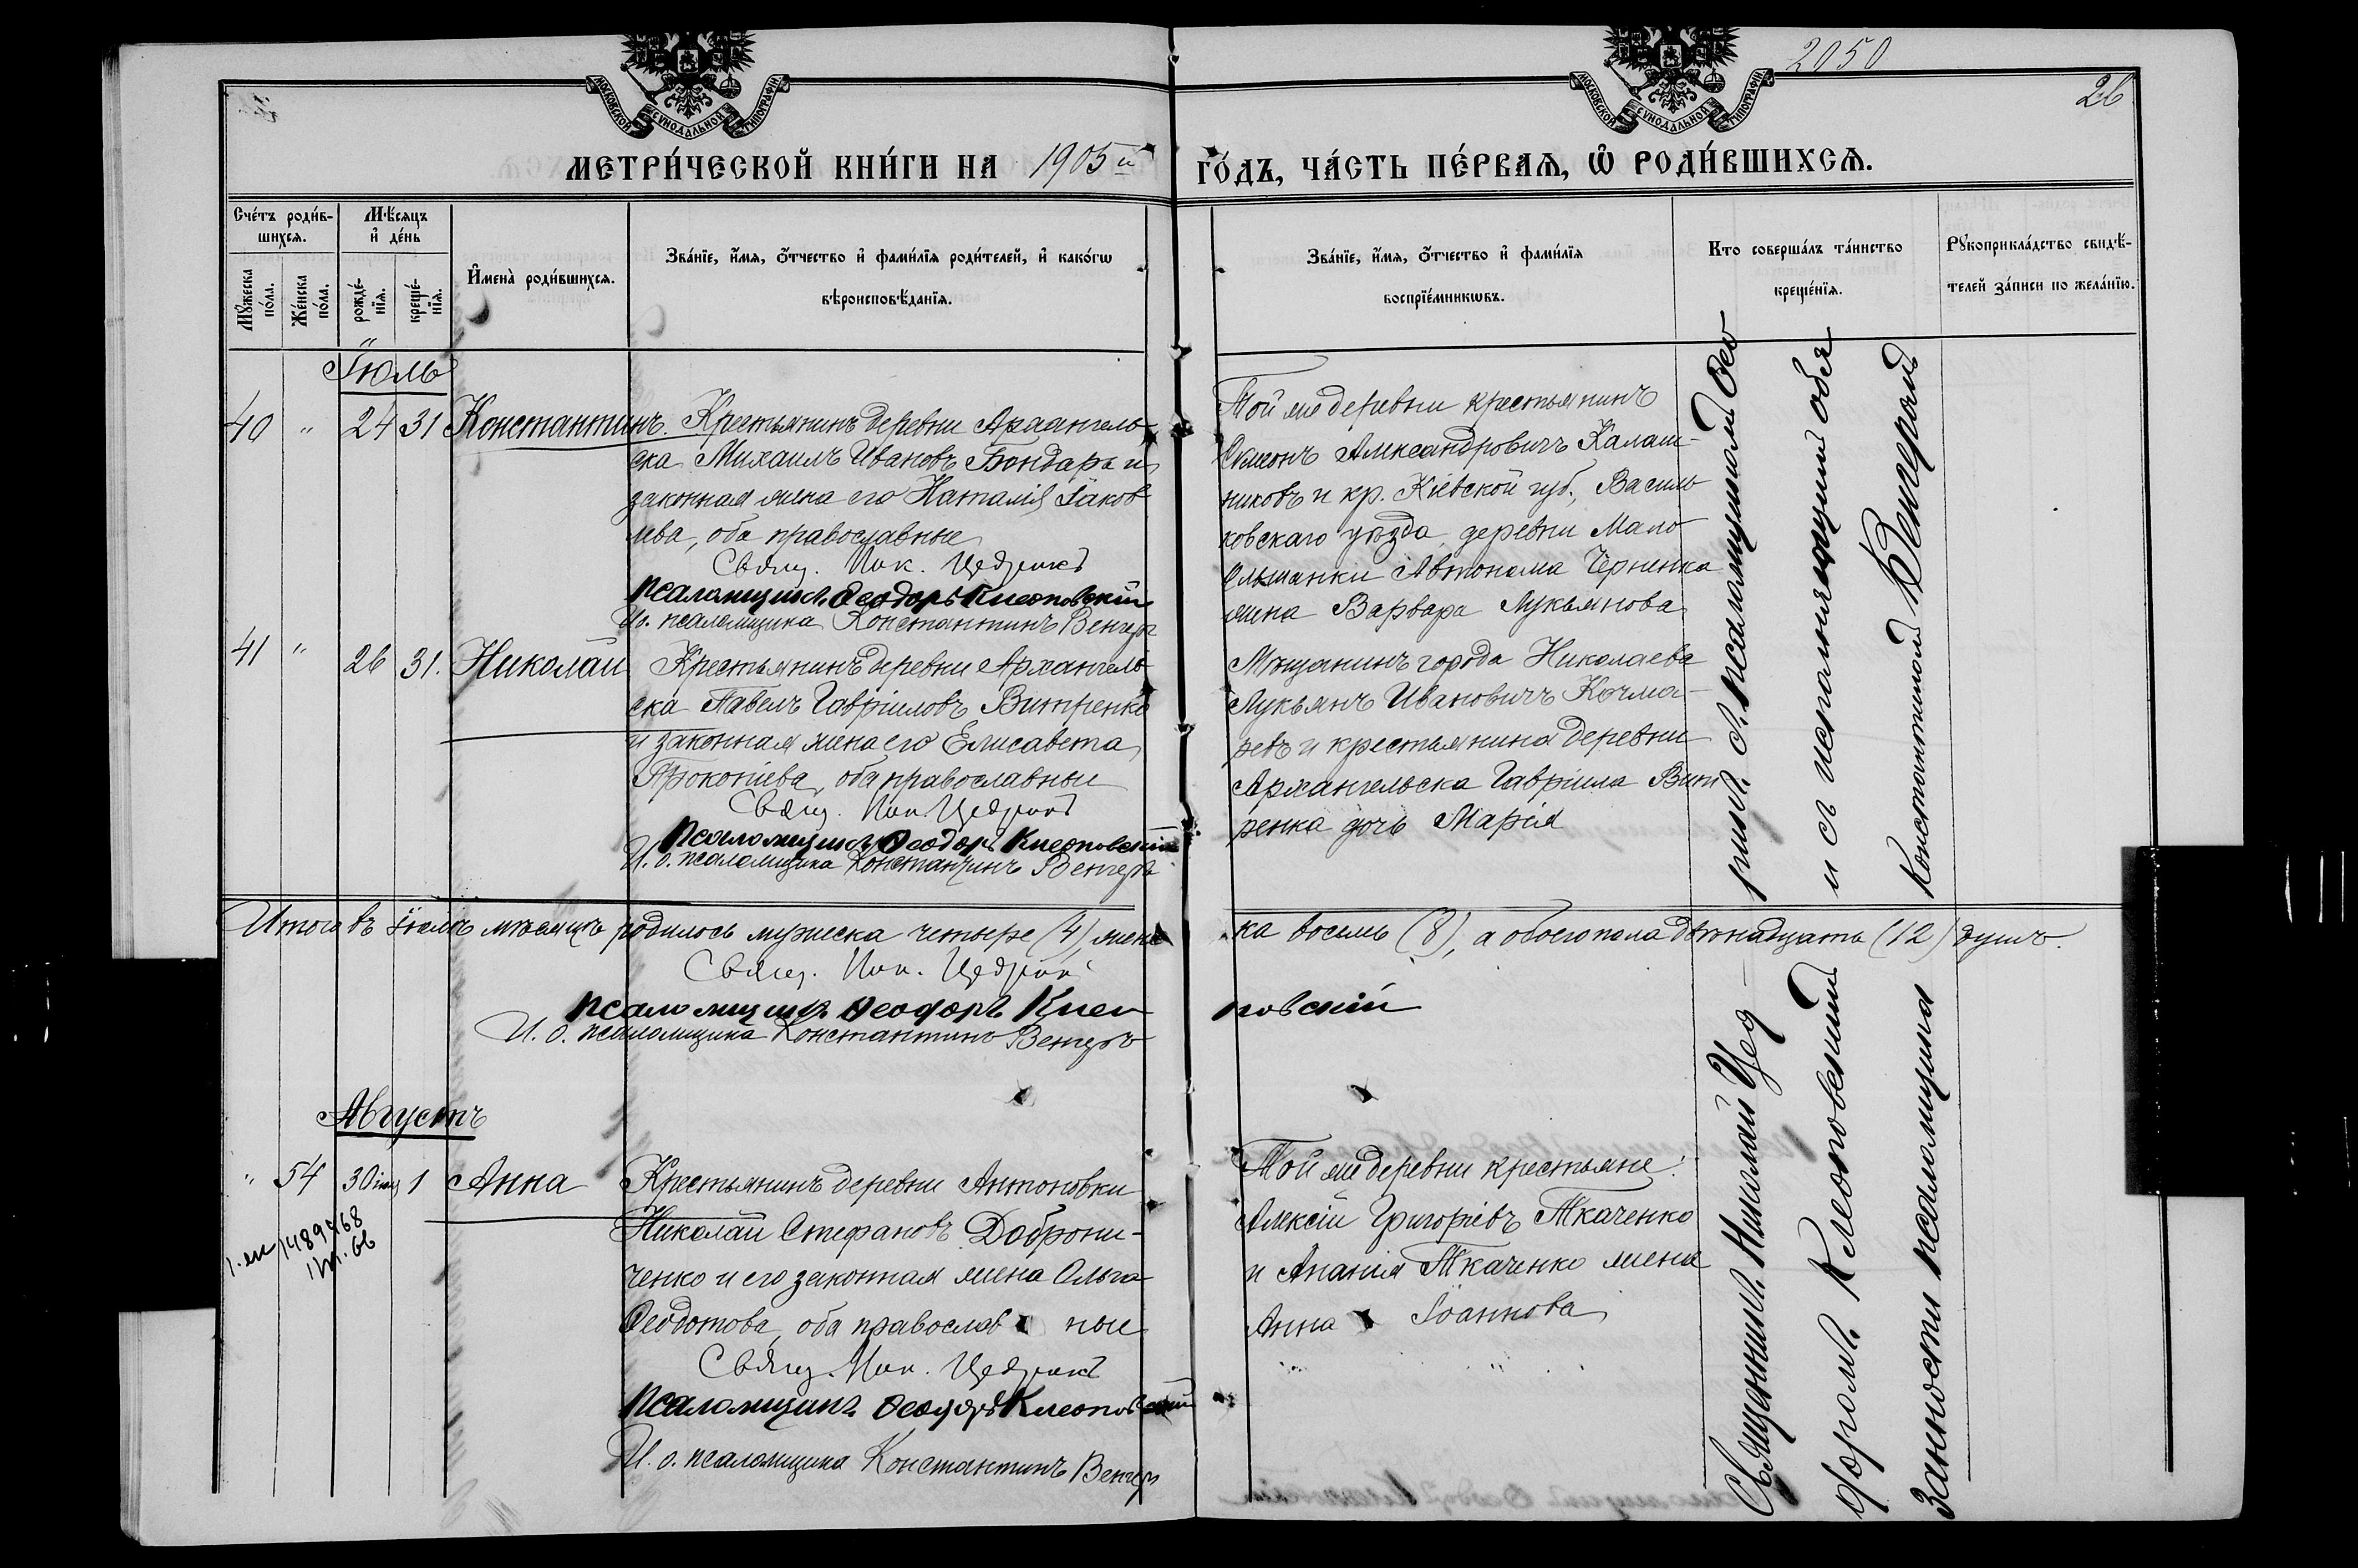 2050
26
МОСКОВСКОЙ СѴНОДАЛЬНОЙ ТИПОГРАФІИ
МОСКОВСКОЙ СѴНОДАЛЬНОЙ ТИПОГРАФІИ
МЕТРИ́ЧЕСКОЙ КНИ́ГИ НА 1905й ГО́ДЪ, ЧА́СТЬ ПЕ́РВАѦ, Ѽ РОДИ́ВШИХСѦ.
Сче́тъ роди́в-
шихсѧ.
Мꙋ́жеска по́ла.
Же́нска по́ла.
Мѣ́сѧцъ
и҆ де́нь
рожде́-
нїѧ.
креще́-
нїѧ.
И҆мена̀ роди́вшихсѧ.
Зва́нїе, и҆́мѧ, ѻ҆́тчество и҆ фами́лїѧ роди́телей, и҆ како́гѡ
вѣроисповѣ́данїѧ.
Зва́нїе, и҆́мѧ, ѻ҆́тчество и҆ фами́лїѧ
воспрїе́мникѡвъ.
Кто соверша́лъ та́инство
креще́нїѧ.
Рꙋкоприкла́дство свидѣ́-
телей за́писи по жела́нїю.
Іюль
40 " 24 31 Константинъ. Крестьянинъ деревни Архангель-
ска Михаилъ Ивановъ Бондарь и
законная жена его Наталія Іаков-
лева, оба православные
Свящ. Ник. Цедрикъ
Псаломщикъ Ѳеодоръ Клеоповскій
И. о. псаломщика Константинъ Венгеръ
Той же деревни крестьянинъ
Симеонъ Александровичъ Калаш-
никовъ и кр. Кіевской губ., Василь-
ковскаго уѣзда деревни Мало-
Ольшанки Автонома Черненка
жена Варвара Лукьянова
41 " 26 31. Николай Крестьянинъ деревни Архангель-
ска Павелъ Гавріиловъ Витренко
и законная жена его Елисавета
Прокопіева, оба православные
Свящ. Ник. Цедрикъ
Псаломщикъ Ѳеодоръ Клеоповскій
И. о. псаломщика Константинъ Венгеръ
Мѣщанинъ города Николаева
Лукьянъ Ивановичъ Кочма-
ревъ и крестьянина деревни
Архангельска Гавріила Вит-
ренка дочь Марія
Итого въ іюлѣ мѣсяцѣ родилось мужеска четыре (4), женс-
ка восемь (8), а обоего пола двѣнадцать (12) душъ.
Свящ. Ник. Цедрикъ
Псаломщикъ Ѳеодоръ Клео-
повскій
И. о. псаломщика Константинъ Венгеръ
Августъ
" 54 30 іюл 1 Анна Крестьянинъ деревни Антоновки
Николай Стефановъ Доброни-
ченко и его законная жена Ольга
Ѳеодотова, оба православные
Свящ. Ник. Цедрикъ
Псаломщикъ Ѳеодоръ Клеоповскій
И. о. псаломщика Константинъ Венгеръ
Той же деревни крестьяне:
Алексій Григоріевъ Ткаченко
и Ананія Ткаченко жена
Анна Іоаннова
Священникъ Николай Цед-
рикъ съ псаломщикомъ Ѳео-
доромъ Клеоповскимъ
и съ исполняющимъ обя-
занности псаломщика
Константиномъ Венгеромъ